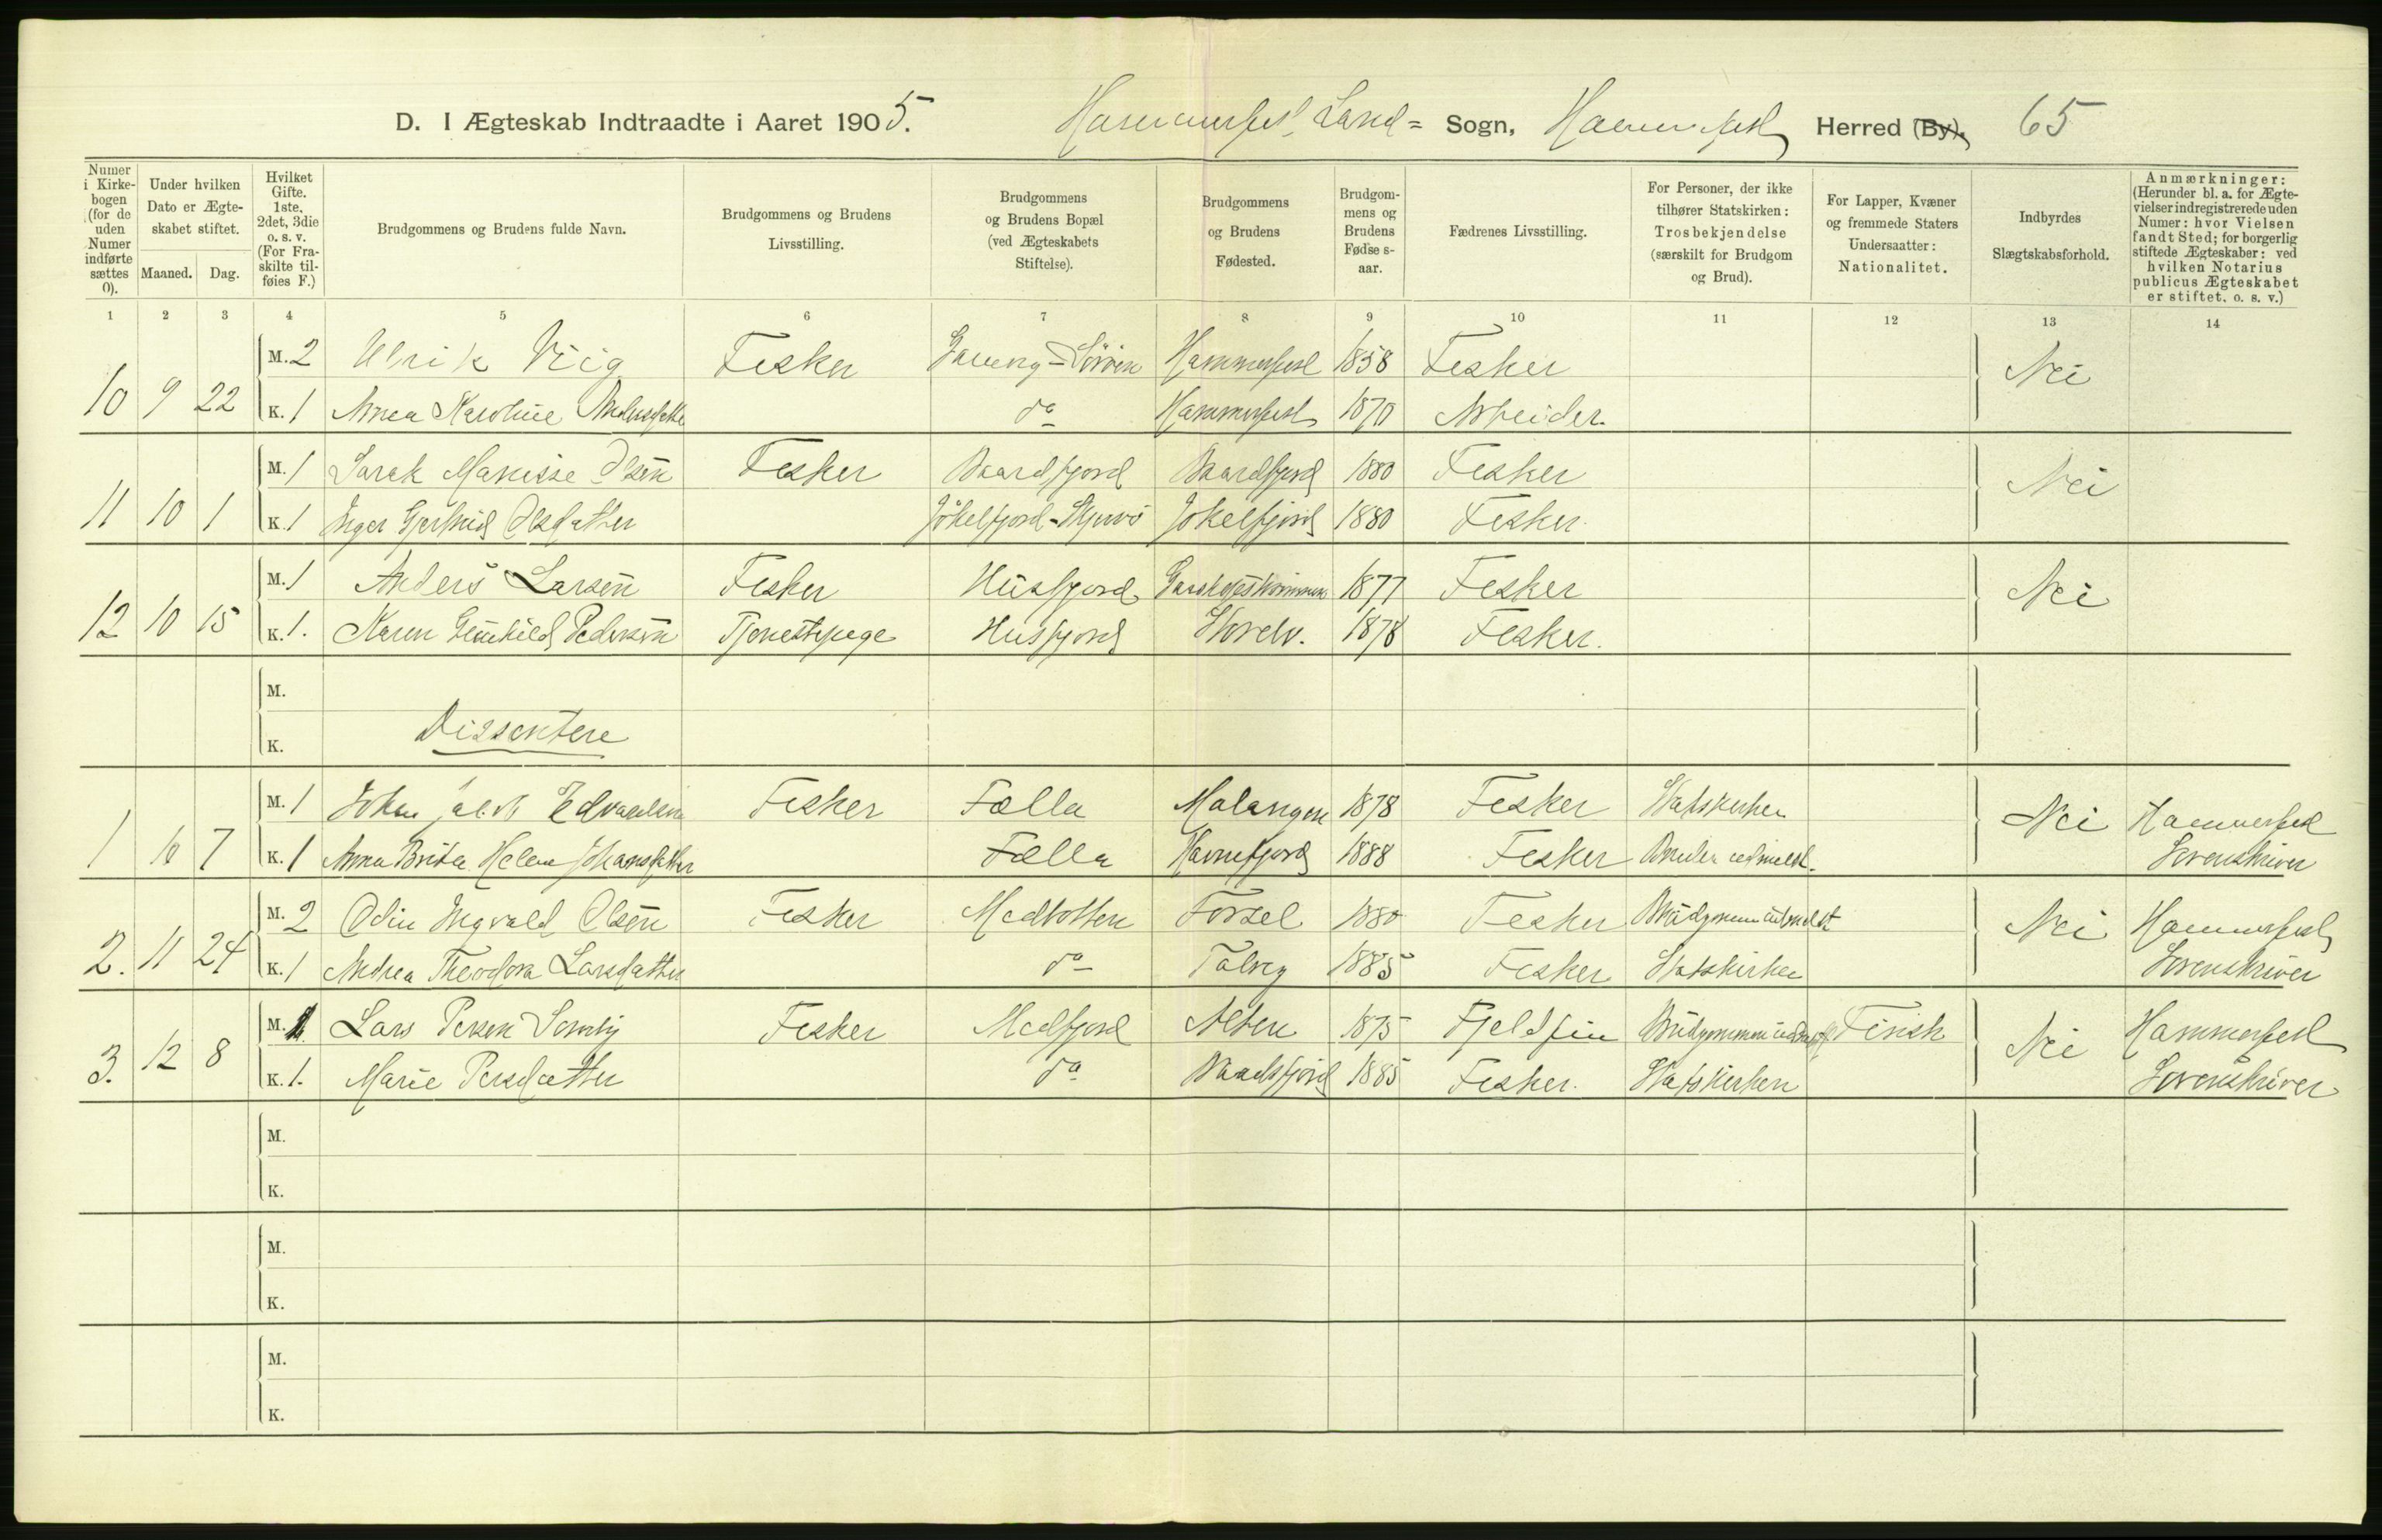 D. I Ægteskab Indtraadte i Aaret 1905. Hammerfest Land= Sogn, Hammerfest Herred (By). 65
Numer i Kirke-bogen (for de uden Numer indførte sættes 0).
Under hvilken Dato er Ægte-skabet stiftet.
Maaned. Dag.
Hvilket Gifte. 1ste, 2det, 3die o. s. v. (For Fra-skilte til-føies F.)
Brudgommens og Brudens fulde Navn.
Brudgommens og Brudens Livsstilling.
Brudgommens og Brudens Bopæl (ved Ægteskabets Stiftelse).
Brudgommens og Brudens Fødested.
Brudgom-mens og Brudens Fødse s-aar.
Fædrenes Livsstilling.
For Personer, der ikke tilhører Statskirken: Trosbekjendelse (særskilt for Brudgom og Brud).
For Lapper, Kvæner og fremmede Staters Undersaatter: Nationalitet.
Indbyrdes Slægtskabsforhold.
Anmærkninger: (Herunder bl. a. for Ægte-vielser indregistrerede uden Numer: hvor Vielsen fandt Sted; for borgerlig stiftede Ægteskaber: ved hvilken Notarius publicus Ægteskabet er stiftet. o. s. v.)
1 2 3 4 5 6 7 8 9 10 11 12 13 14
10 9 22 M. 2 Ulrik Viig Fisker Hammerfest 1858 Fisker Nei
K. 1 Anna Karoline do Hammerfest 1870 Arbeider.
11 10 1 M. 1 Olsen Fisker Baardfjord Baardfjord 1880 Fisker Nei
K. 1 Inger Gjertrud Olsdatter Jökelfjord-Skjervö Jökelfjord 1880 Fisker.
12 10 15 M. 1 Anders Larsen Fisker Husfjord 1877 Fisker Nei
K. 1. Karen Pedersen Tjenestepige Husfjord Storelv. 1878 Fisker.
M.
K. Dissentere
1 10 7 M. 1 Johan Jakob Edvardsen Fisker Fælla Malangen 1878 Fisker Statskirken Nei Hammerfest
K. 1 Anna Brita Helene Johansdatter Fælla Havnefjord 1888 Fisker Bruden udmeldt. Sorenskriver
2. 11 24 M. 2 Odin Ingvald Olsen Fisker Medbotten Forsøl 1880 Fisker Brudgommen udmeldt Nei Hammerfest
K. 1 Andrea Theodora Larsdatter do Talvig 1885 Fisker Statskirken Sorenskriver
3. 12 8 M. 1. Lars Persen Somby Fisker Medfjord Alten 1875 Fjeldfin Brudgommen udmeldt Finsk Nei Hammerfest
K. 1. Marie Persdatter do 1885 Fisker. Statskirken Sorenskriver
M.
K.
M.
K.
M.
K.